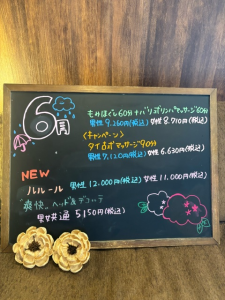 6月
もみほぐし60分+バリ式リンパマッサージ60分
男性 9.260円(税込) 女性 8.710円(税込)
〈キャンペーン〉
タイ古式マッサージ90分
男性 7.120円(税込) 女性 6.630円(税込)
NEW
ルルール
男性 12.000円(税込) 女性 11.000円(税込)
爽快。ヘッド&デコルテ
男女共通 5150円(税込)